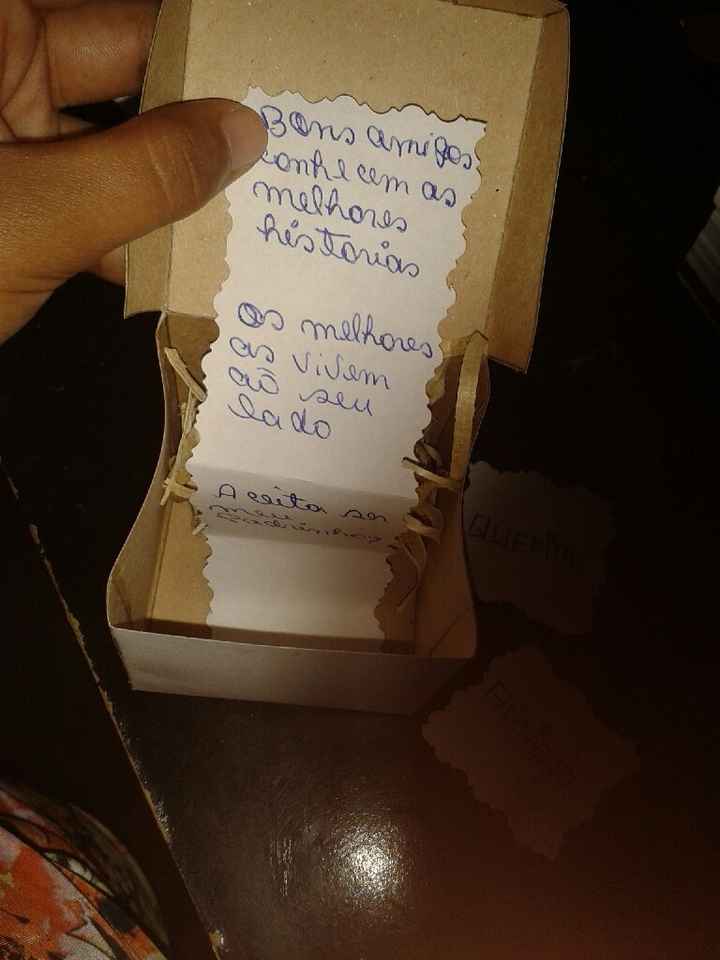 Bons amigos
conhecem as
melhores
historias
Os melhores
as vivem
aõ seu
lado
Aceita ser
meu
Padrinho?